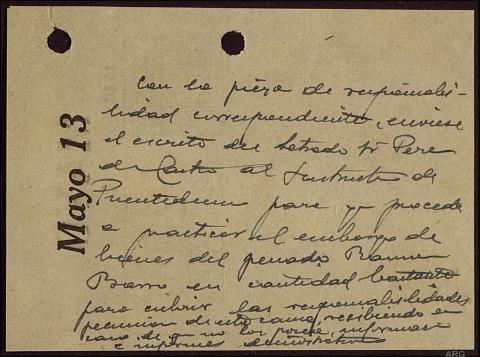 Mayo 13
Con la pieza de responsabi-
lidad correspondiente, envíese
el escrito del Letrado Sr Pere
de Castro al Instructor de
Puentedeume para q procede
a practicar el embargo de
bienes del penado Ramon
Barro en cantidad bastante
para cubrir las responsabilidades
de esta causa, recibiendo en
caso de q no los posea, informacion
e informes
ARG